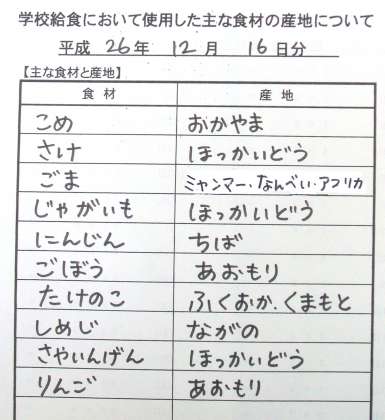 学校給食において使用した主な食材の産地について
平成 26年 12月 16日分
【主な食材と産地】
食材 産地
こめ おかやま
さけ ほっかいどう
ごま ミャンマー・なんべい・アフリカ
じゃがいも ほっかいどう
にんじん ちば
ごぼう あおもり
たけのこ ふくおか.くまもと
しめじ ながの
さやいんげん ほっかいどう
りんご あおもり